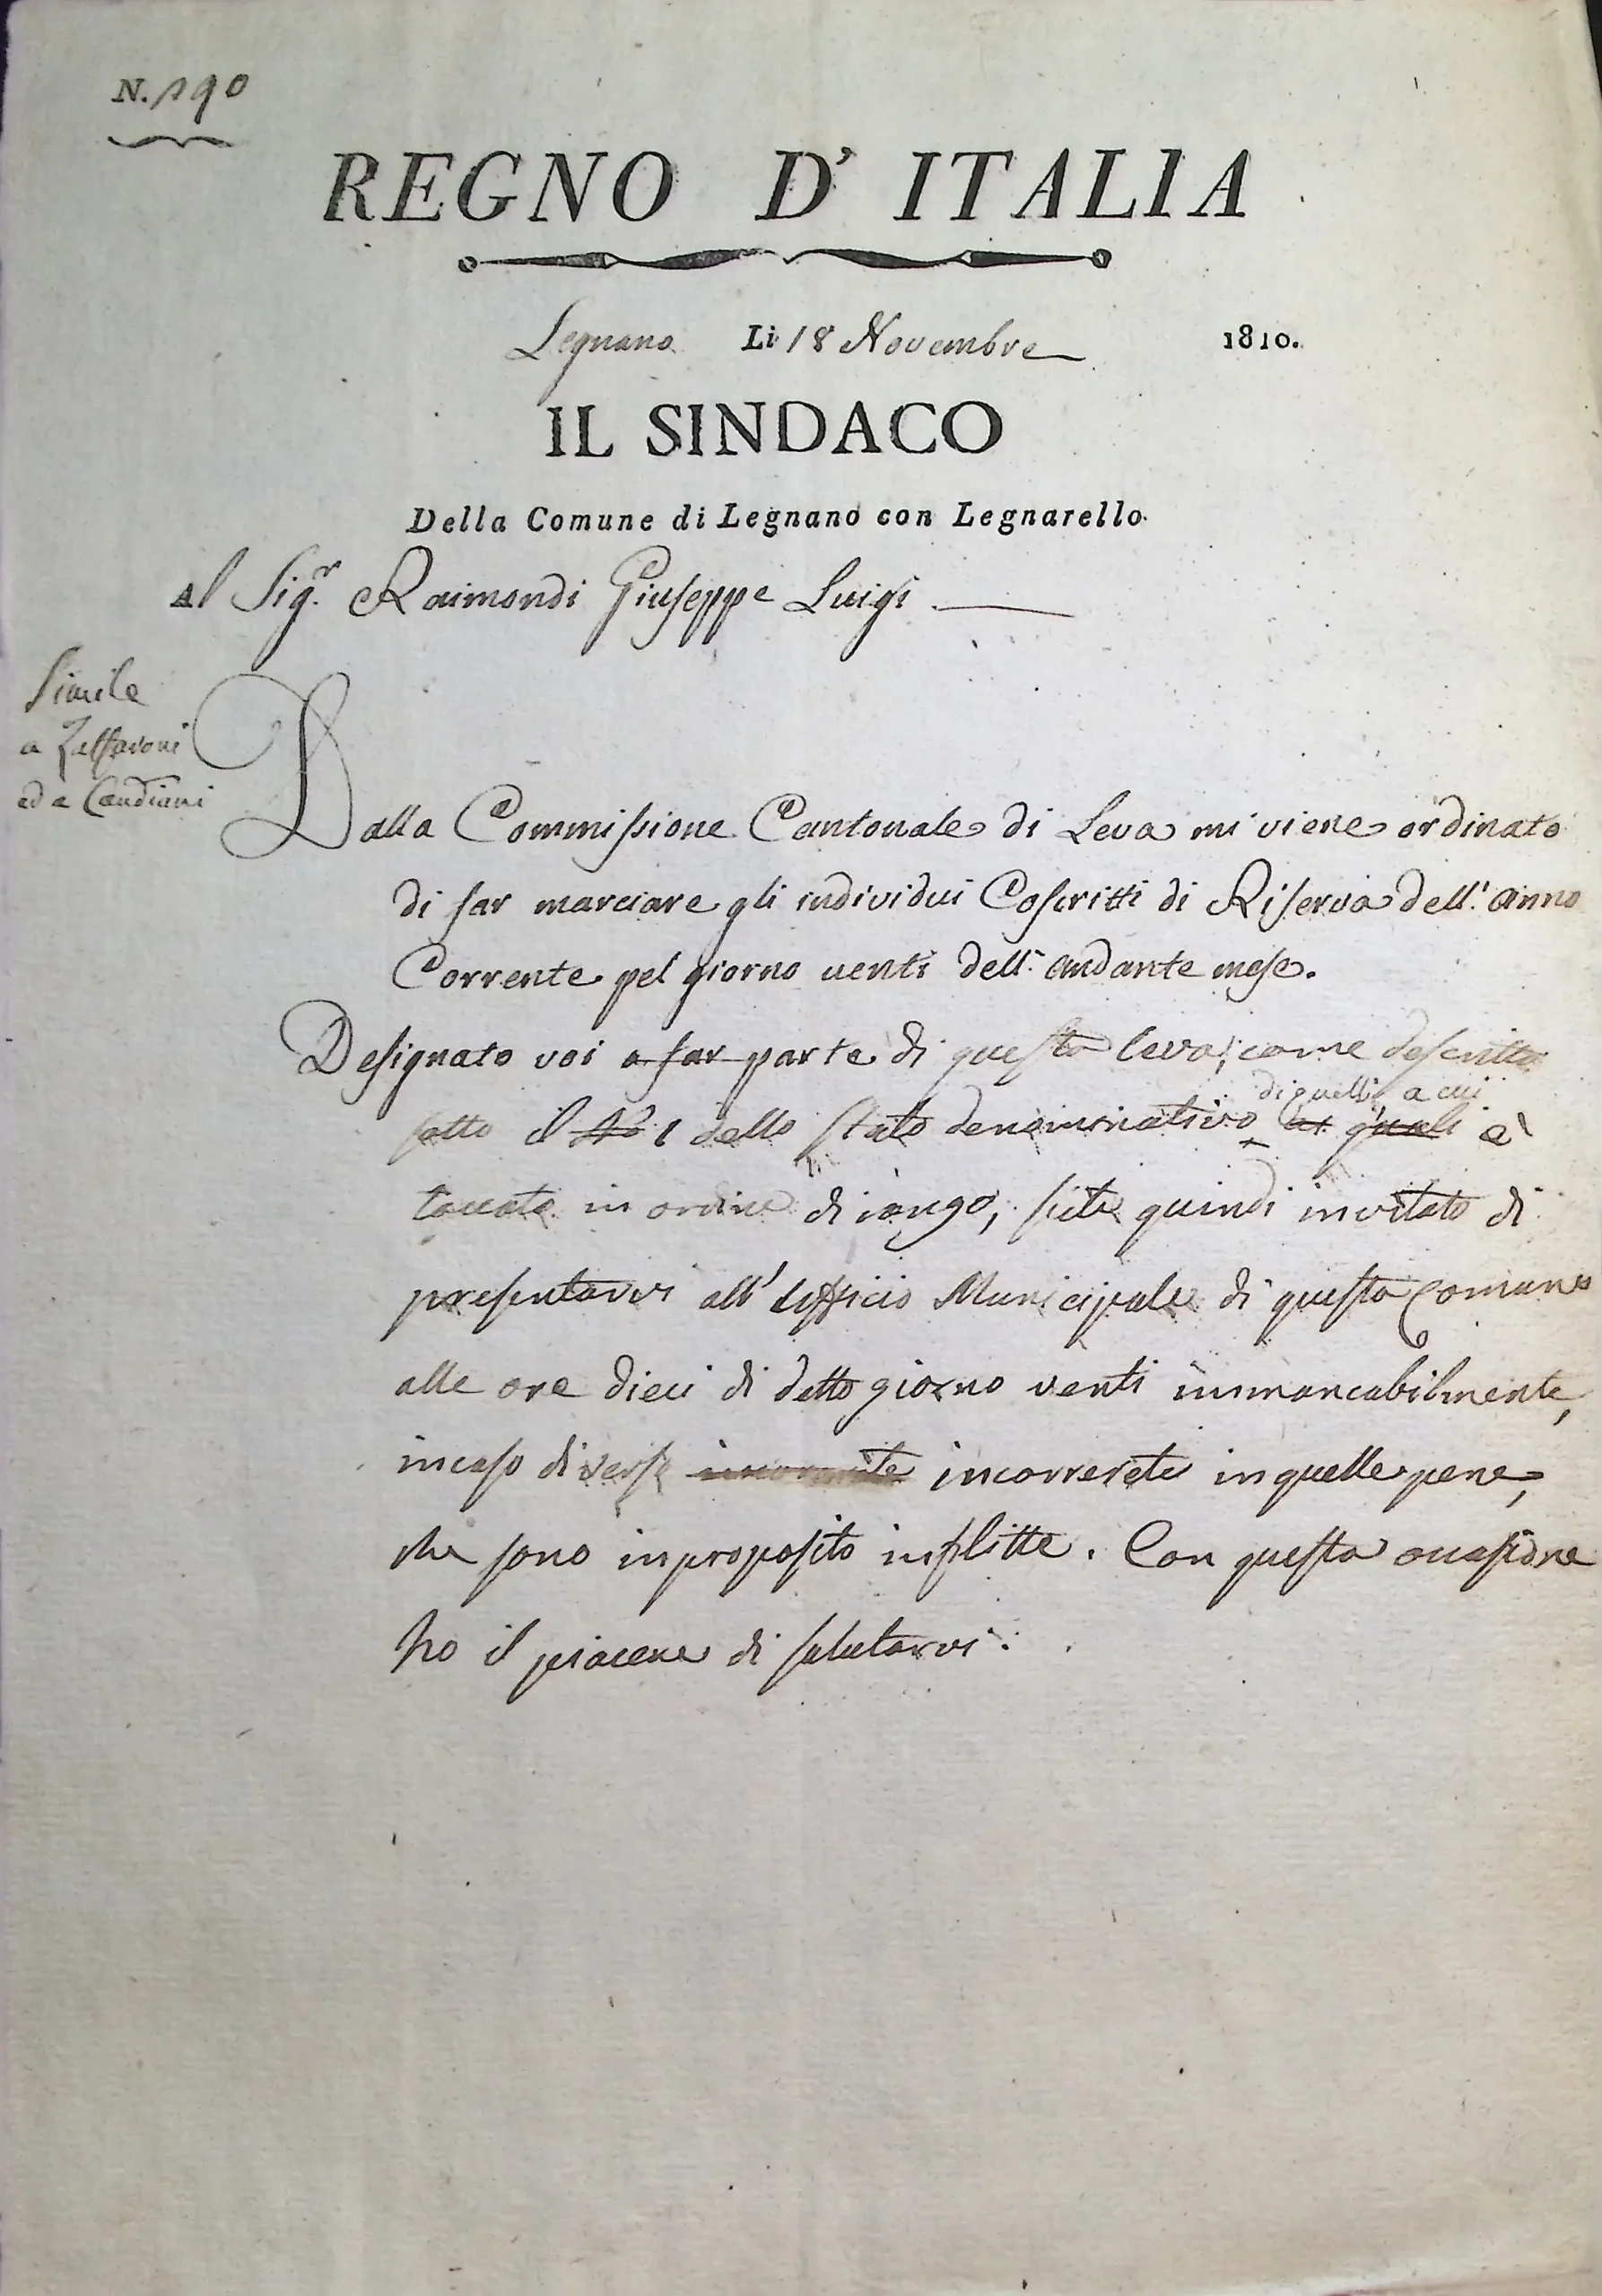 N. 190
REGNO D' ITALIA
Legnano Li 18 Novembre 1810.
IL SINDACO
Della Comune di Legnano con Legnarello.
Al Sig.r Raimondi Giuseppe Luigi
Simile
a Zaffaroni
ed a Candiani
Dalla Commissione Cantonale di Leva mi viene ordinato
di far marciare gli individui Coscritti di Riserva dell' anno
Corrente pel giorno venti dell' andante mese.
Designato voi a far parte di questa leva, come descritto
sotto il No 1 dello Stato denominativo
di quelli a cui
quali è
toccato in ordine di rango, siete quindi invitato di
presentarvi all' Uffficio Municipale di questa Comune
alle ore dieci di detto giorno venti immancabilmente,
in caso diverso incorrerete in quelle pene,
che sono in proposito inflitte. Con questa occasione
ho il piacere di salutarvi.